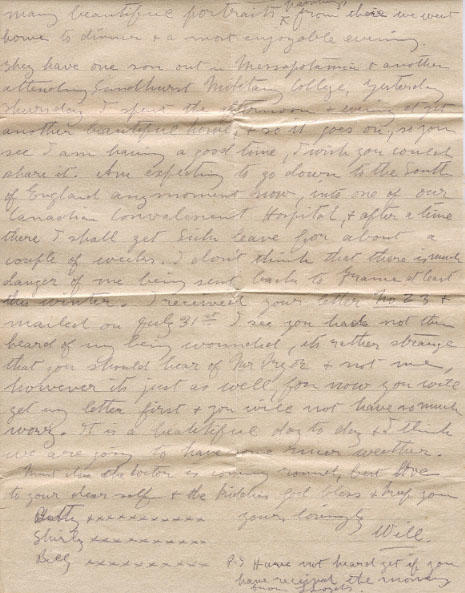 many beautiful portraits from there we went
home to dinner & a most enjoyable evening.
They have one son out in Messopotamia & another
attending Sandhurst Military College, yesterday
Thursday I spent the afternoon & evening at
another beautiful home, & so it goes on, so you
see I am having a good time, I wish you could
share it. Am expecting to go down to the South
of England any moment now, into one of our
Canadian Convalescent Hospital, & after a time
there I shall get Sick leave for about a
couple of weeks. I don't think that there is much
danger of me being sent back to France at least
this winter. I received your letter No 23 &
mailed on July 31st I see you had not then
heard of my being wounded, its rather strange
that you should hear of Mr & not me,
however its just as well for now you will
get my letter first & you will not have so much
worry. It is a beautiful day to day & I think
we are going to have some nicer weather.
Must the doctor is coming round, best love
to your dear self & the kiddies god bless & keep you
Betty xxxxxxxxxxx yours lovingly
Shirly xxxxxxxxxxx Will.
Billy xxxxxxxxxxx P.S Have not heard yet if you
have received the money
from